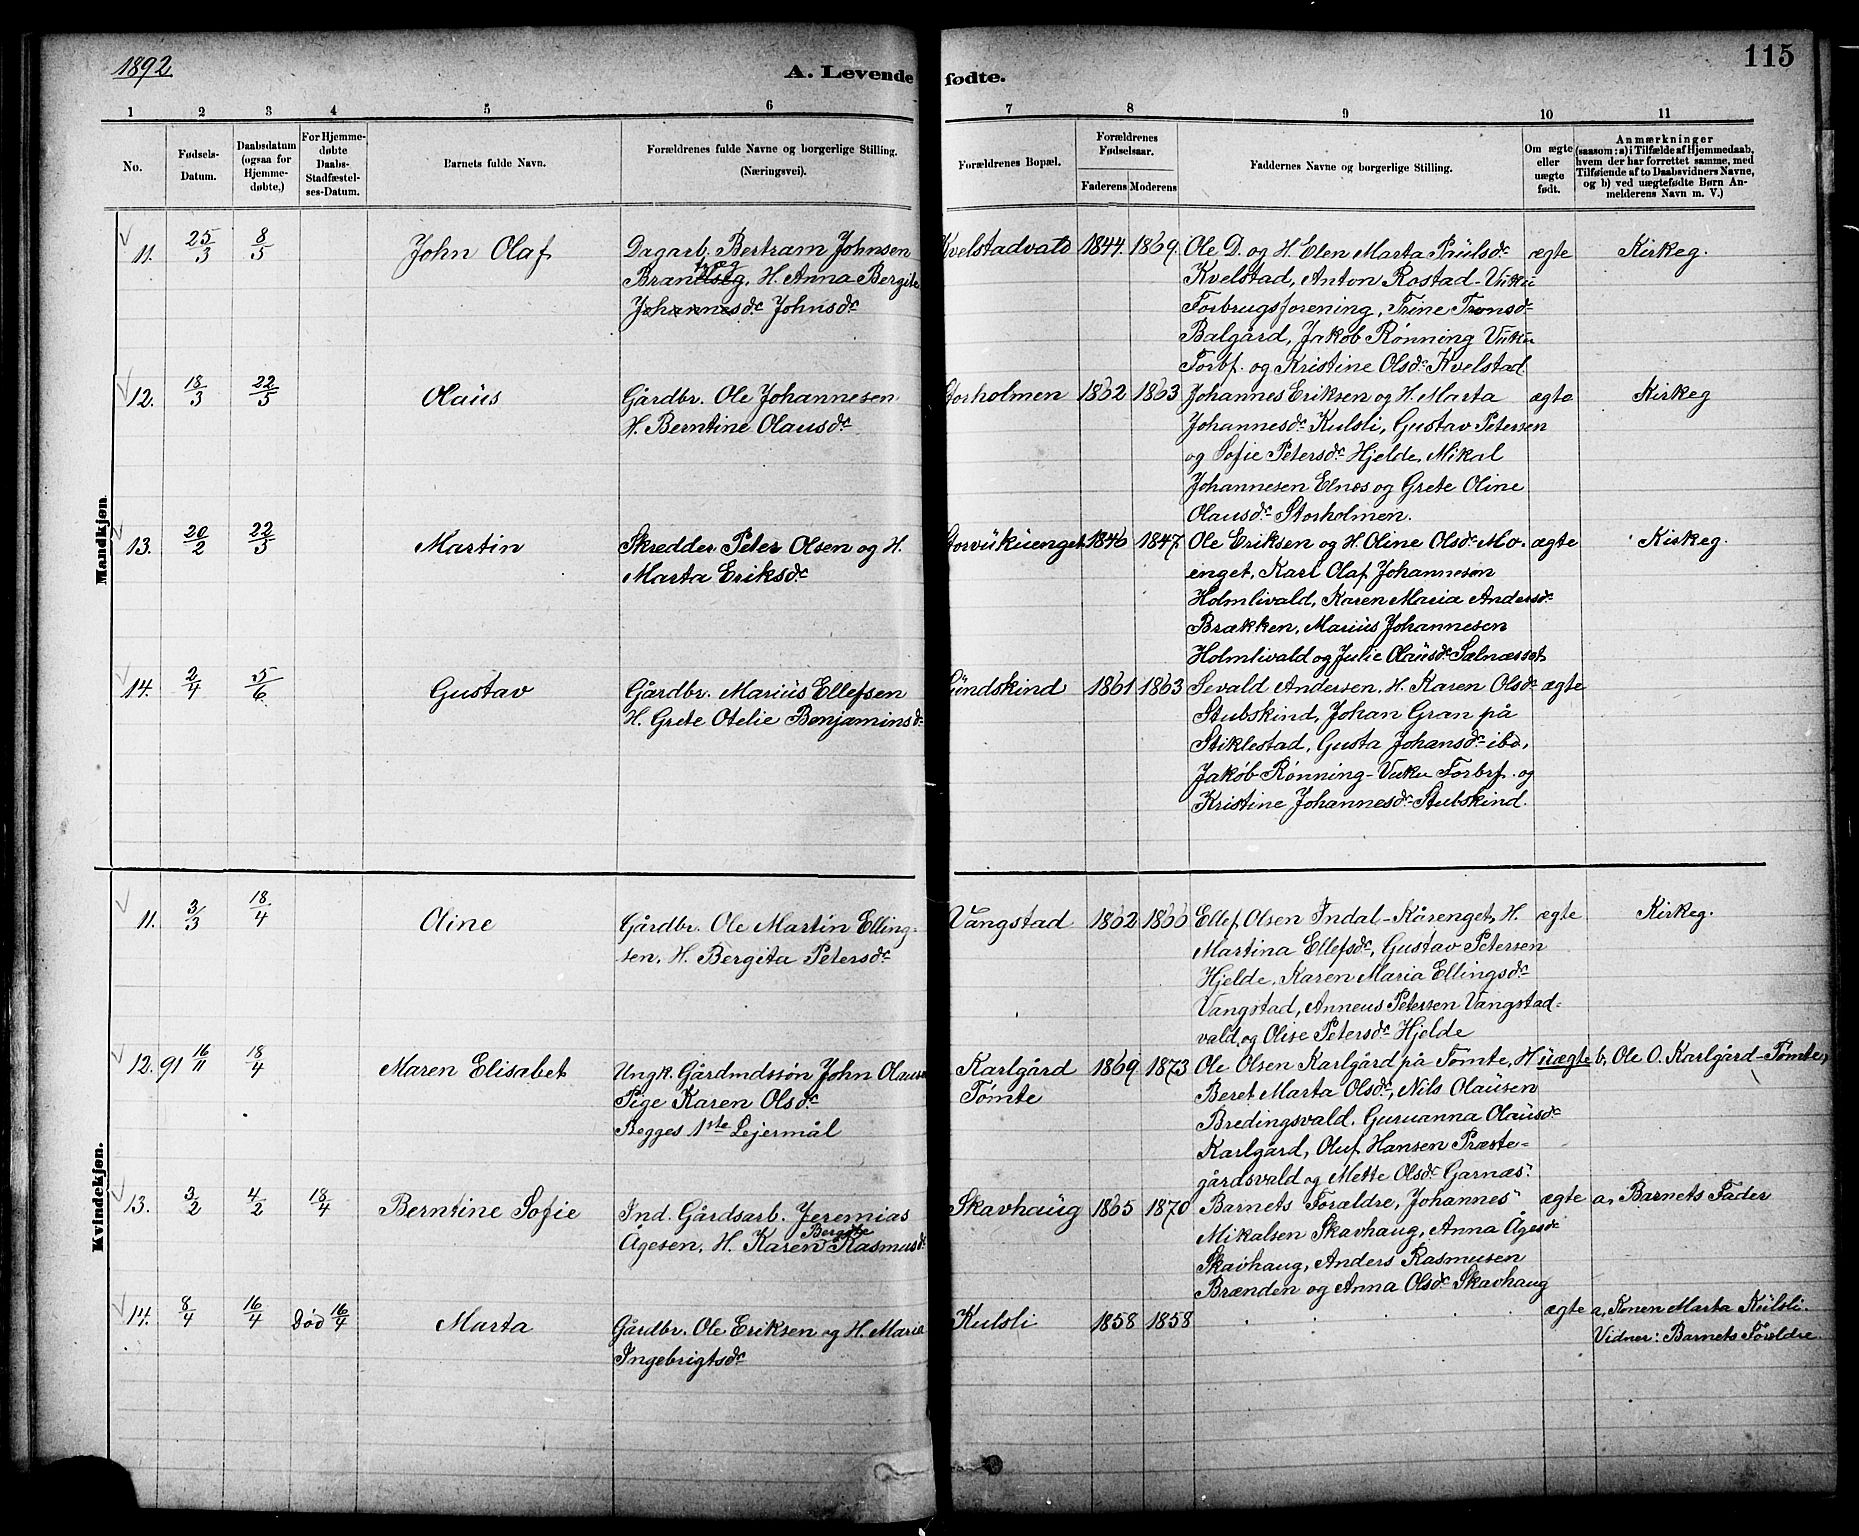 1892
A. Levende fødte.
115
1 2 3 4 5 6 7 8 9 10 11
No.
Fødsels-Datum.
Daabsdatum (ogsaa for Hjemmedøbte,)
For Hjemmedøbte Daabs-Stadfæstelses-Datum.
Barnets fulde Navn.
Forældrenes fulde Navne og borgerlige Stilling. (Næringsvei).
Forældrenes Bopæl.
Forældrenes Fødselsaar.
Faderens Moderens
Faddernes Navne og borgerlige Stilling.
Om ægte eller uægte født.
Anmærkninger
(saasom: a) i Tilfælde af Hjemmedaab,
hvem der har forrettet samme, med
Tilføiende af to Daabsvidners Navne,
og b) ved uægtefødte Børn Anmelderens Navn m. V.)
Mandkjøn
11. 25/3 8/5 John Olaf
Dagarb. Bertram Johnsen
Brandseg, H. Anna Bergite
Johannesdr Johnsdr
Kvelstadvald 1844 1869
Ole D. og H. Elen Marta Paulsdr
Kvelstad, Anton Rostad-Vuku
Forbrugsforening, Trine Tronsdr
Balgård, Jakob Rønning Vuku
Forbf. og Kristine Olsdr Kvelstad
ægte Kirkeg.
12. 18/3 22/5 Olaus
Gårdbr. Ole Johannesen
H. Berntine Olausdr
Storholmen 1862 1863
Johannes Eriksen og H. Marta
Johannesdr Kulsli, Gustav Petersen
og Sofie Petersdr Hjelde, Mikal
Johannesen Elnes og Grete Oline
Olausdr Storholmen.
ægte Kirkeg
13. 20/2 22/5 Martin
Skredder Peter Olsen og H.
Marta Eriksdr
Storvukuenget 1846 1847
Ole Eriksen og H. Oline Olsdr Mo-
enget, Karl Olaf Johannesen
Holmlivald, Karen Maria Andersdr
Brækken, Marius Johannesen
Holmlivald og Julie Olausdr Salnesset
ægte Kirkeg.
14. 2/4 5/6 Gustav
Gårdbr. Marius Ellefsen
H. Grete Otelie Benjaminsdr
Sundskind 1861 1863
Sevald Andersen. H. Karen Olsdr
Stubskind, Johan Gran på
Stiklestad, Gusta Johansdr ibd,
Jakob Rønning-Vuku Forbrf. og
Kristine Johannesdr Stubskind.
ægte
Kvindekjøn.
11. 3/3 18/4 Oline
Gårdbr. Ole Martin Elling-
sen, H. Bergita Petersdr
Vangstad 1862 1866
Ellef Olsen Indal-Kårenget, H.
Martina Ellefsdr, Gustav Petersen
Hjelde, Karen Maria Ellingsdr
Vangstad, Anneus Petersen Vangstad-
vald, og Olise Petersdr Hjelde
ægte Kirkeg.
12. 91 16/11 18/4 Maren Elisabet
Ungk. Gårdmdssøn John Olausen
Pige Karen Olsdr
Begges 1ste Lejermål
Karlgård
Tømte
1869 1873
Ole Olsen Karlgård på Tømte, H
Beret Marta Olsdr, Nils Olausen
Bredingsvald, Guruanna Olausdr
Karlgård, Oluf Hansen Præste-
gårdsvald og Mette Olsdr Garnæs.
uægte b, Ole O. Karlgård-Tømte
13. 3/2 4/2 18/4 Berntine Sofie
Ind. Gårdsarb. Jeremias
Bergitte
Ågesen, H. Karen Rasmusdr
Skavhaug 1865 1870
Barnets Forældre, Johannes
Mikalsen Skavhaug, Anna Ågesdr
Skavhaug, Anders Rasmusen
Brænden og Anna Olsdr Skavhaug
ægte a, Barnets Fader
14. 8/4 16/4 død 16/4 Marta
Gårdbr. Ole Eriksen og H. Maria
Ingebrigtsdr
Kulsli 1858 1858
ægte a, Konen Marta Kulsli.
Vidner: Barnets Forældre.